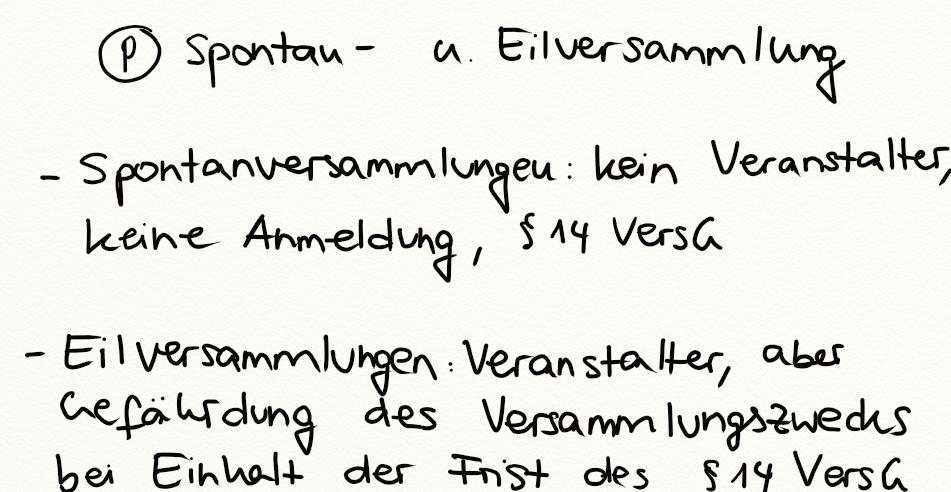 (P) Spontan- u. Eilversammlung
- Spontanversammlungen: kein Veranstalter,
keine Anmeldung, § 14 VersG
- Eilversammlungen: Veranstalter, aber
Gefährdung des Versammlungszwecks
bei Einhalt der Frist des § 14 VersG